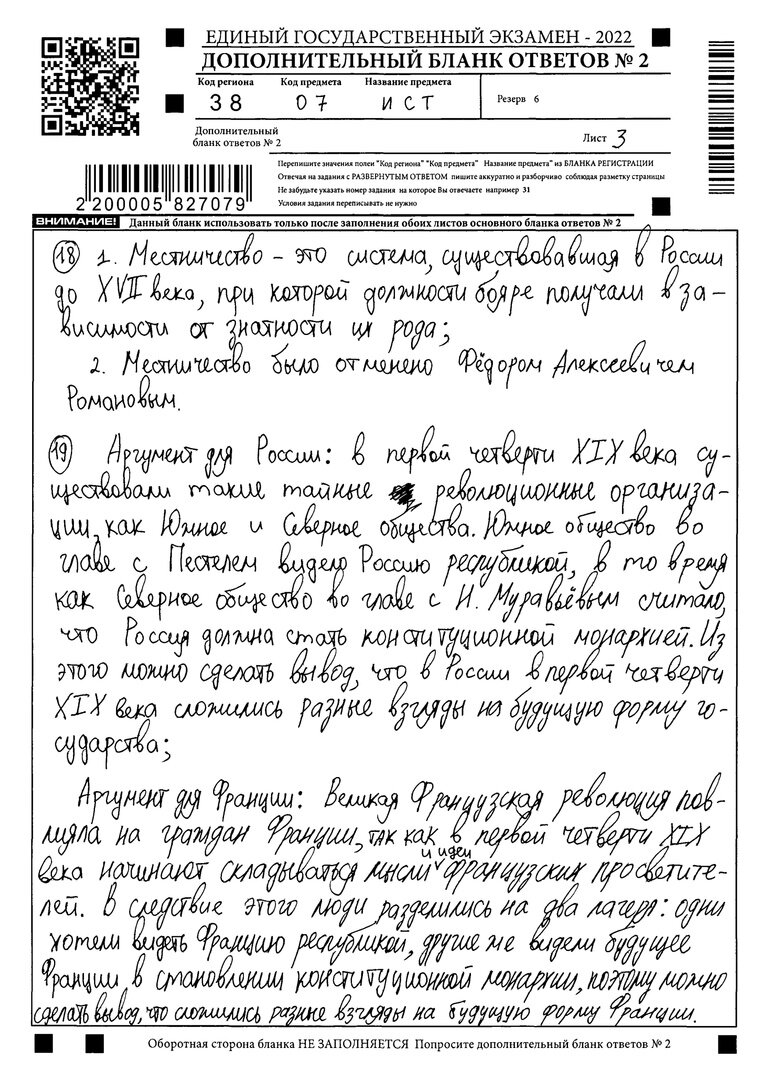 ЕДИНЫЙ ГОСУДАРСТВЕННЫЙ ЭКЗАМЕН - 2022
ДОПОЛНИТЕЛЬНЫЙ БЛАНК ОТВЕТОВ № 2
Код региона Код предмета Название предмета
38 07 ИСТ
Резерв 6
Дополнительный
бланк ответов № 2
Лист 3
Перепишите значения полей "Код региона" "Код предмета" Название предмета" из БЛАНКА РЕГИСТРАЦИИ
Отвечая на задания с РАЗВЕРНУТЫМ ОТВЕТОМ пишите аккуратно и разборчиво соблюдая разметку страницы
Не забудьте указать номер задания на которое Вы отвечаете например 31
Условия задания переписывать не нужно
2 200005 827079
ВНИМАНИЕ! Данный бланк использовать только после заполнения обоих листов основного бланка ответов № 2
18 1. Местничество - это система, существовавшая в России
до XVII века, при которой должности бояре получали в за-
висимости от знатности их рода;
2. Местничество было отменено Фёдором Алексеевичем
Романовым.
19 Аргумент для России: в первой четверти XIX века су-
ществовали такие тайные революционные организа-
ции, как Южное и Северное общества. Южное общество во
главе с Пестелем видело Россию республикой, в то время
как Северное общество во главе с Н. Муравьёвым считало,
что Россия должна стать конституционной монархией. Из
этого можно сделать вывод, что в России в первой четверти
XIX века сложились разные взгляды на будущую форму го-
сударства;
Аргумент для Франции: Великая Французская революция пов-
лияла на граждан Франции, так как в первой четверти XIX
века начинают складываться мысли и идеи французских просветите-
лей. В следствие этого люди разделились на два лагеря: одни
хотели видеть Францию республикой, другие же видели будущее
Франции в становлении конституционной монархии, поэтому можно
сделать вывод, что сложились разные взгляды на будущую форму Франции.
Оборотная сторона бланка НЕ ЗАПОЛНЯЕТСЯ Попросите дополнительный бланк ответов № 2